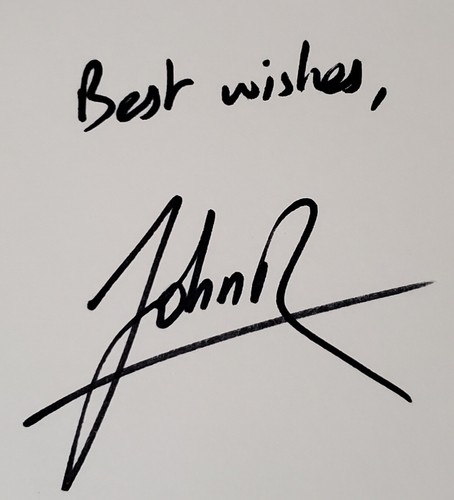 Best wishes,
John R